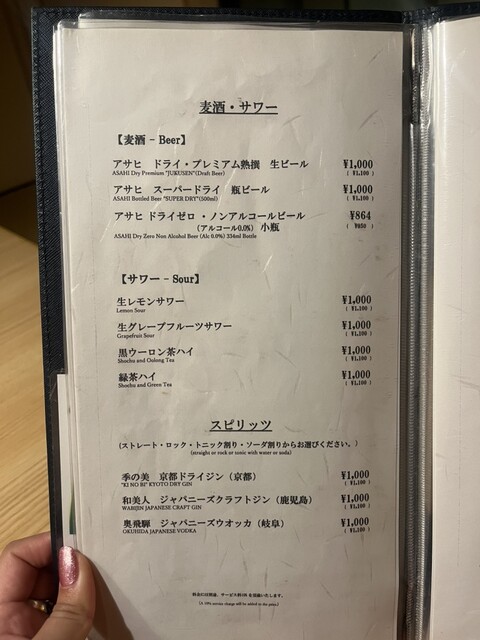 麦酒・サワー
【麦酒 – Beer】
アサヒ ドライ・プレミアム熟撰 生ビール ¥1,000
ASAHI Dry Premium "JUKUSEN"(Draft Beer) ( ¥1,100 )
アサヒ スーパードライ 瓶ビール ¥1,000
ASAHI Bottled Beer "SUPER DRY"(500ml) ( ¥1,100 )
アサヒ ドライゼロ ・ノンアルコールビール ¥864
(アルコール0.0%) 小瓶 ( ¥950 )
ASAHI Dry Zero Non Alcohol Beer (Alc 0.0%) 334ml Bottle
【サワー – Sour】
生レモンサワー ¥1,000
Lemon Sour ( ¥1,100 )
生グレープフルーツサワー ¥1,000
Grapefruit Sour ( ¥1,100 )
黒ウーロン茶ハイ ¥1,000
Shochu and Oolong Tea ( ¥1,100 )
緑茶ハイ ¥1,000
Shochu and Green Tea ( ¥1,100 )
スピリッツ
(ストレート・ロック・トニック割り・ソーダ割りからお選びください。)
(straight or rock or tonic with water or soda)
季の美 京都ドライジン（京都） ¥1,000
"KI NO BI" KYOTO DRY GIN ( ¥1,100 )
和美人 ジャパニーズクラフトジン（鹿児島） ¥1,000
WABIJIN JAPANESE CRAFT GIN ( ¥1,100 )
奥飛騨 ジャパニーズウオッカ（岐阜） ¥1,000
OKUHIDA JAPANESE VODKA ( ¥1,100 )
料金には別途、サービス料10%を頂戴いたします。
(A 10% service charge will be added to the price.)